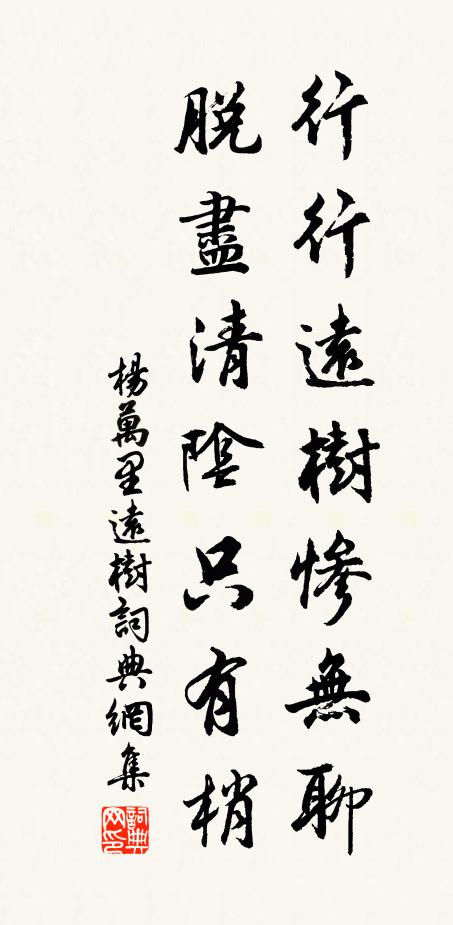 行行遠樹慘無聊
脫盡清陰只有梢
楊萬里遠樹詞典網集
詞典网印